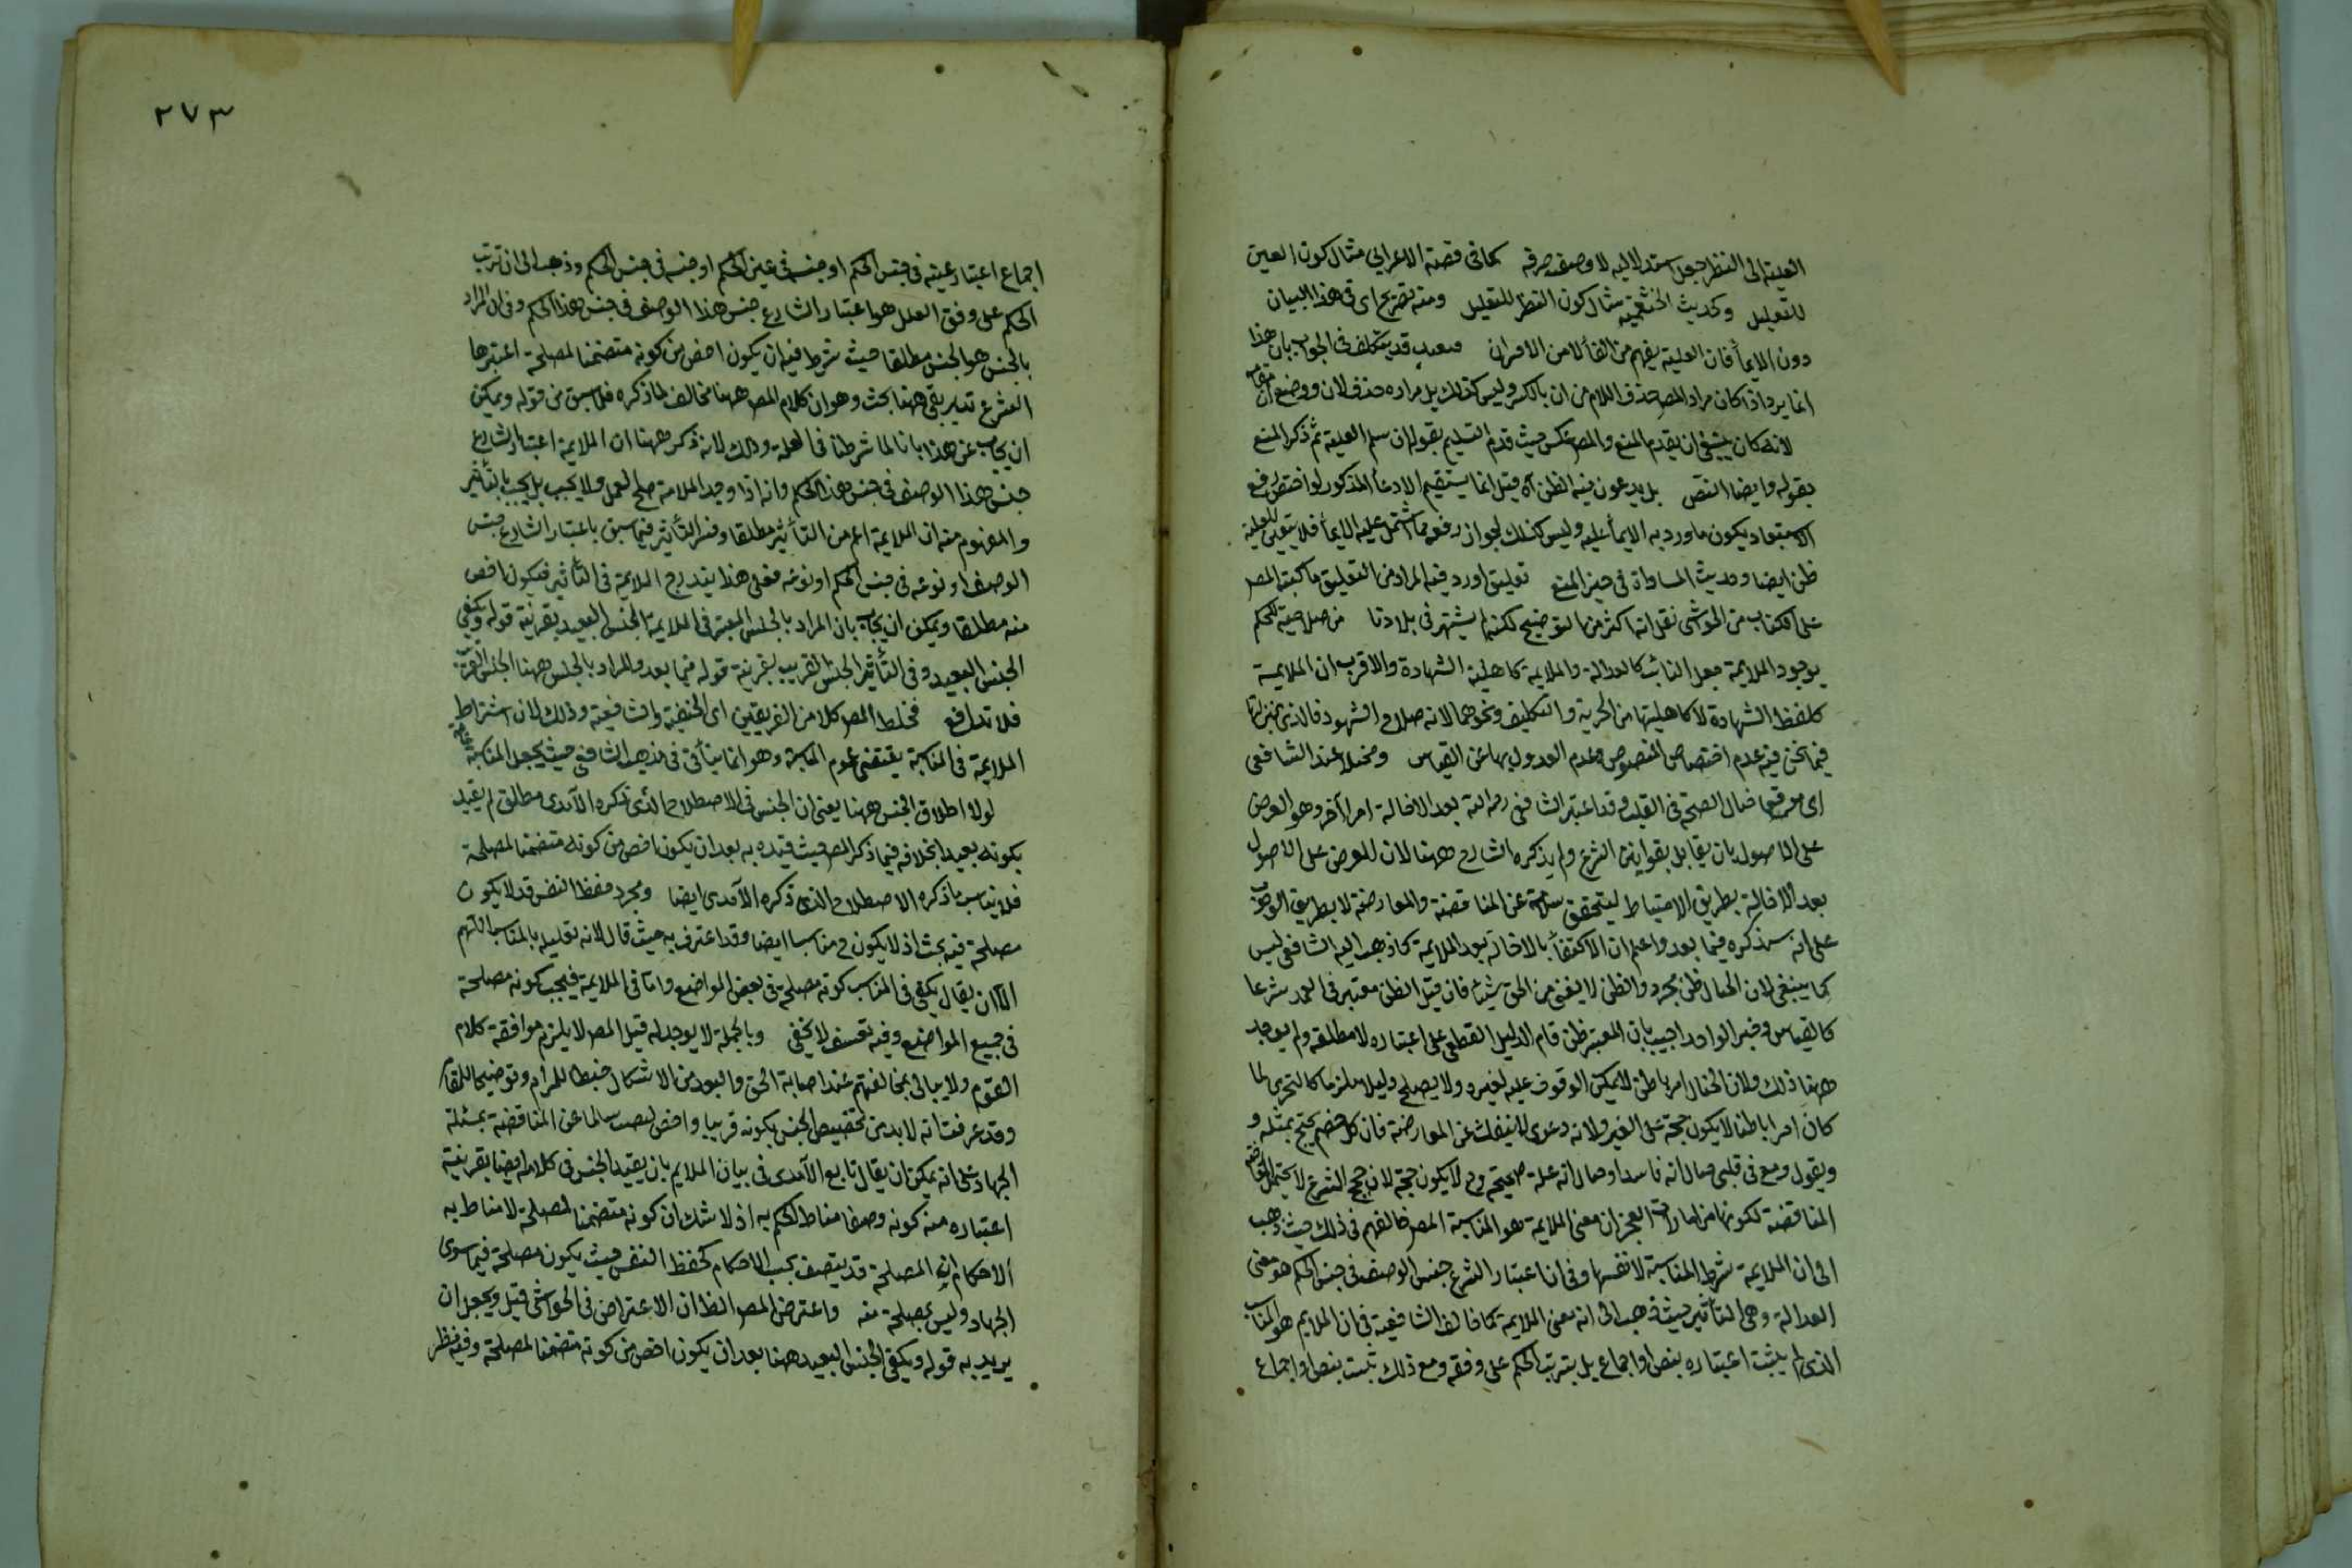 العلية الى النظر جعل استدلاليه لا وصف صرفه كما فى قصة الاعرابى مثال كون العين
للتعليل وكحديث الخثعمية مثال كون النظر للتعليل ومنه تصريح اى فى هذا البيان
دون الايماء فان العلية يفهم من الفاء لا من الاقران قد يتكلف فى الجواب بان هذا
انما يرد اذا كان مراد المصر حذف اللام من ان بالكسر وليس كذلك بل مراده حذف لان ووضع ان مقامه
لانه كان ينبغى ان يقدم المنع والمصر عكس حيث قدم التسليم بقوله ان سلم العلية ثم ذكر المنع
بقوله وايضا النص بل يدعون فيه الظن آه قيل انما يستقيم الادعاء المذكور لو اختص رفع
الاستبعاد بكون ما ورد به الايماء عليه وليس كذلك لجواز رفعه بما اشتمل عليه الايماء فلا يتعين للعلية
ظن ايضا وحديث المساواة فى حيز المنع تعليق اورد فيه المراد من التعليق ما كتبه المصر
على الكتاب من الحواشى نقل انه اكثر من التوضيح لكنه لم يشتهر فى بلادنا من صلاحيته للحكم
بوجود الملايمة جعل الثابت كالعدالة والملايمة كاهلية الشهادة والاقرب ان الملايمة
كلفظ الشهادة لا كاهليتها من الحرية والتكليف ونحوهما لانه صلاح الشهود فالذى بمنزلتها
فيما نحن فيه عدم اختصاص المنصوص وعدم العدول بها عن القياس ومخيلا عند الشافعى
اى موقعا خيال الصحة فى القلب وقد اعتبر الشافعى رحمه الله بعد الاخالة امرا آخر وهو العرض
على الاصول بان يقابل بقوانين الشرع ولم يذكره الشارح ههنا لان العرض على الاصول
بعد الاخالة بطريق الاحتياط ليتحقق سلامته عن المناقضة والمعارضة لا بطريق الوجوب
على انه سيذكره فيما بعد واعلم ان الاكتفاء بالاخالة بعد الملايمة كما ذهب اليه الشافعى ليس
كما ينبغى لان الخيال ظن مجرد والظن لا يغنى من الحق شيئا فان قيل الظن معتبر فى العمد شرعا
كالقياس وخبر الواحد اجيب بان المعتبر ظن قام الدليل القطعى على اعتباره لا مطلقه ولم يوجد
ههنا ذلك ولان الخيال امر باطن لا يمكن الوقوف عليه لغيره ولا يصلح دليلا ملزما كالتحرى لما
كان امرا باطنا لا يكون حجة على الغير ولانه دعوى لا ينفك عن المعارضة فان كل خصم يحتج بمثله و
ويقول وقع فى قلبى خيال انه فاسد او خيال انه علة صحيحة وح لا يكون حجة لان حجج الشرع لا يحتمل المعارضة
المناقضة لكونها من امارات العجز ان معنى الملايمة هو المناسبة المصر خالفهم فى ذلك حيث ذهب
الى ان الملايمة شرط المناسبة لا نفسها وفى ان اعتبار الشرع جنس الوصف فى جنس الحكم هو معنى
العدالة وهى التأثير حيث ذهب الى انه معنى الملايمة كما خالف الشافعية فى ان الملايم هو المناسب
الذى لم يثبت اعتباره بنص او اجماع بل بترتب الحكم على وفقه ومع ذلك ثبت بنص او اجماع
٢٧٣
اجماع اعتبار عينه فى جنس الحكم او جنسه فى عين الحكم او جنسه فى جنس الحكم وذهب الى ان ترتب
الحكم على وفق العلل هو اعتبار الشارع جنس هذا الوصف فى جنس هذا الحكم وفى ان المراد
بالجنس هو الجنس مطلقا حيث شرط فيه ان يكون اخص من كونه متضمنا لمصلحة اعتبرها
الشرع تدبر بقى ههنا بحث وهو ان كلام المصر ههنا مخالف لما ذكره فيما سبق من قوله ويمكن
ان يجاب عن هذا بانا لما شرطنا فى العلة وذلك لانه ذكر ههنا ان الملايمة اعتبار الشارع
جنس هذا الوصف فى جنس هذا الحكم وانه اذا وجد الملايمة صلح للعمل ولا يجب بل يجب بالتأثير
والمفهوم منه ان الملايمة اعم من التأثير مطلقا وفسر التأثير فيما سبق باعتبار الشارع جنس
الوصف او نوعه فى جنس الحكم او نوعه فعلى هذا يندرج الملايمة فى التأثير فيكون اخص
منه مطلقا ويمكن ان يجاب بان المراد بالجنس المعتبر فى الملايمة الجنس البعيد بقرينة قوله ويكفى
الجنس البعيد وفى التأثير الجنس القريب بقرينة قوله فيما بعد والمراد بالجنس ههنا الجنس القريب
فلا تدافع فخلط المصر كلا من الفريقين اى الحنفية والشافعية وذلك لان اشتراط
الملايمة فى المناسبة يقتضى عموم المناسبة وهو انما يتأتى فى مذهب الشافعى حيث يجعل المناسبة عامة
لولا اطلاق الجنس ههنا يعنى ان الجنس فى الاصطلاح الذى ذكره الآمدى مطلق لم يقيد
بكونه بعيدا بخلافه فيما ذكر المصر حيث قيده به بعد ان يكون اخص من كونه متضمنا لمصلحة
فلا يناسب ما ذكره الاصطلاح الذى ذكره الآمدى ايضا ومجرد حفظ النفس قد لا يكون
مصلحة فيه بحث اذ لا يكون ح مناسبا ايضا وقد اعترف به حيث قال لانه تعليله بالمناسب اللهم
الا ان يقال يكفى فى المناسب كونه مصلحة فى بعض المواضع واما فى الملايمة فيجب كونه مصلحة
فى جميع المواضع وفيه تعسف لا يخفى وبالجملة لا يوجد له قيل المصر لا يلزم موافقة كلام
القوم ولا يبالى بمخالفتهم عند اصابة الحق والبعد من الاشكال ضبطا للمرام وتوضيحا للمقام
وقد عرفت انه لا بد من تخصيص الجنس بكونه قريبا واخص ليصير سالما عن المناقضة بمسئلة
الجهاد على انه يمكن ان يقال تابع الآمدى فى بيان الملايم بان يقيد الجنس فى كلامه ايضا بقرينة
اعتباره منه كونه وصفا مناط الحكم به اذ لا شك ان كونه متضمنا لمصلحة لا مناط به
الاحكام اى المصلحة قد يتصف بحسب الاحكام كحفظ النفس حيث يكون مصلحة فيما سوى
الجهاد وليس بمصلحة فيه واعترض المصر الظ ان الاعتراض فى الحواشى قيل ويجعل ان
يريد به قوله ويكفى الجنس البعيد ههنا بعد ان يكون اخص من كونه متضمنا لمصلحة وفيه نظر